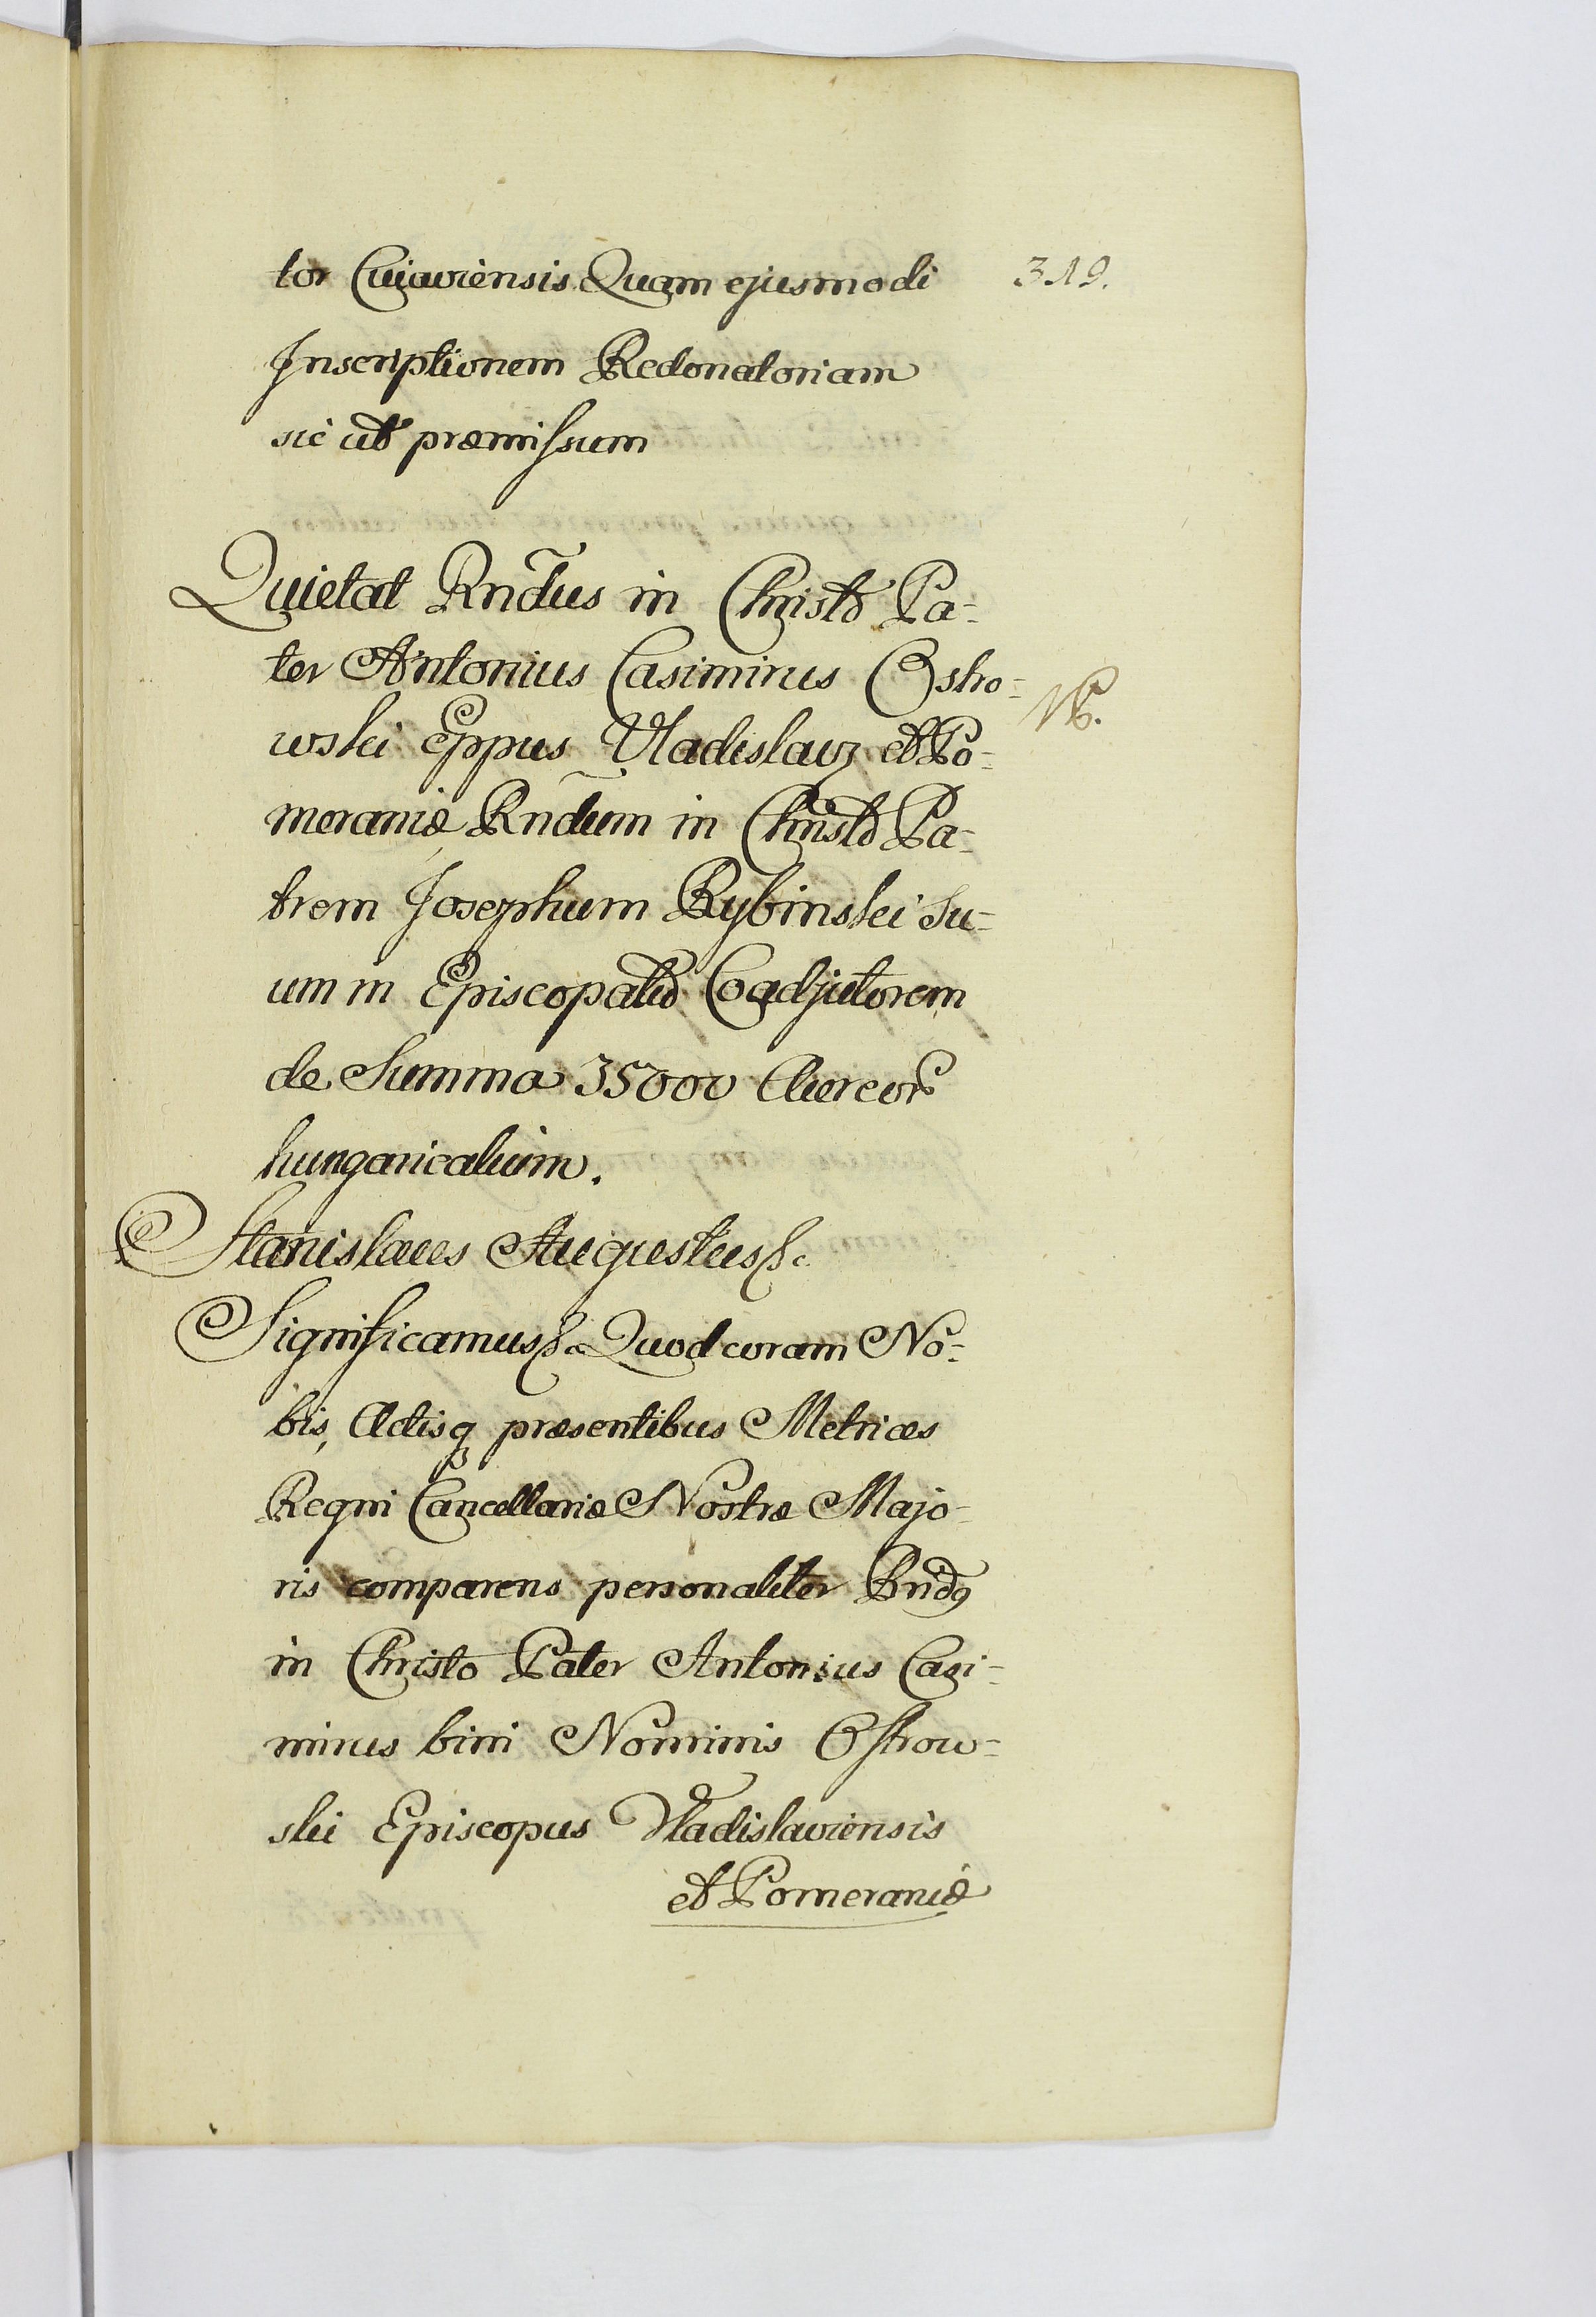 tor Cujaviensis. Quam ejusmodi 319.
Inscriptionem Redonatoriam
sic ut præmissum
Quietat Rndus in Christo Pa-
ter Antonius Casimirus Ostro-
wski Eppus Vladislavz et Po- NB.
meraniæ Rndum in Christo Pa-
trem Josephum Rybinski Su-
um in Episcopatu Coadjutorem
de Summa 35000 Aureor
hungaricalium.
Stanislaus Augustus &c
Significamus &c Quod coram No-
bis, Actisq præsentibus Metrices
Regni Cancellariæ Nostræ Majo-
ris comparens personaliter Rnd9
in Christo Pater Antonius Casi-
mirus bini Nominis Ostrow-
ski Episcopus Vladislaviensis
et Pomeraniæ